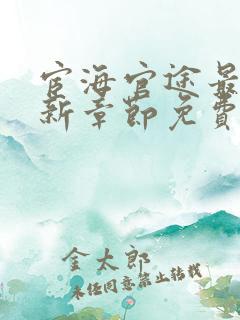 宦海官途最
新章節免費
金太郎
未任同意禁止转载